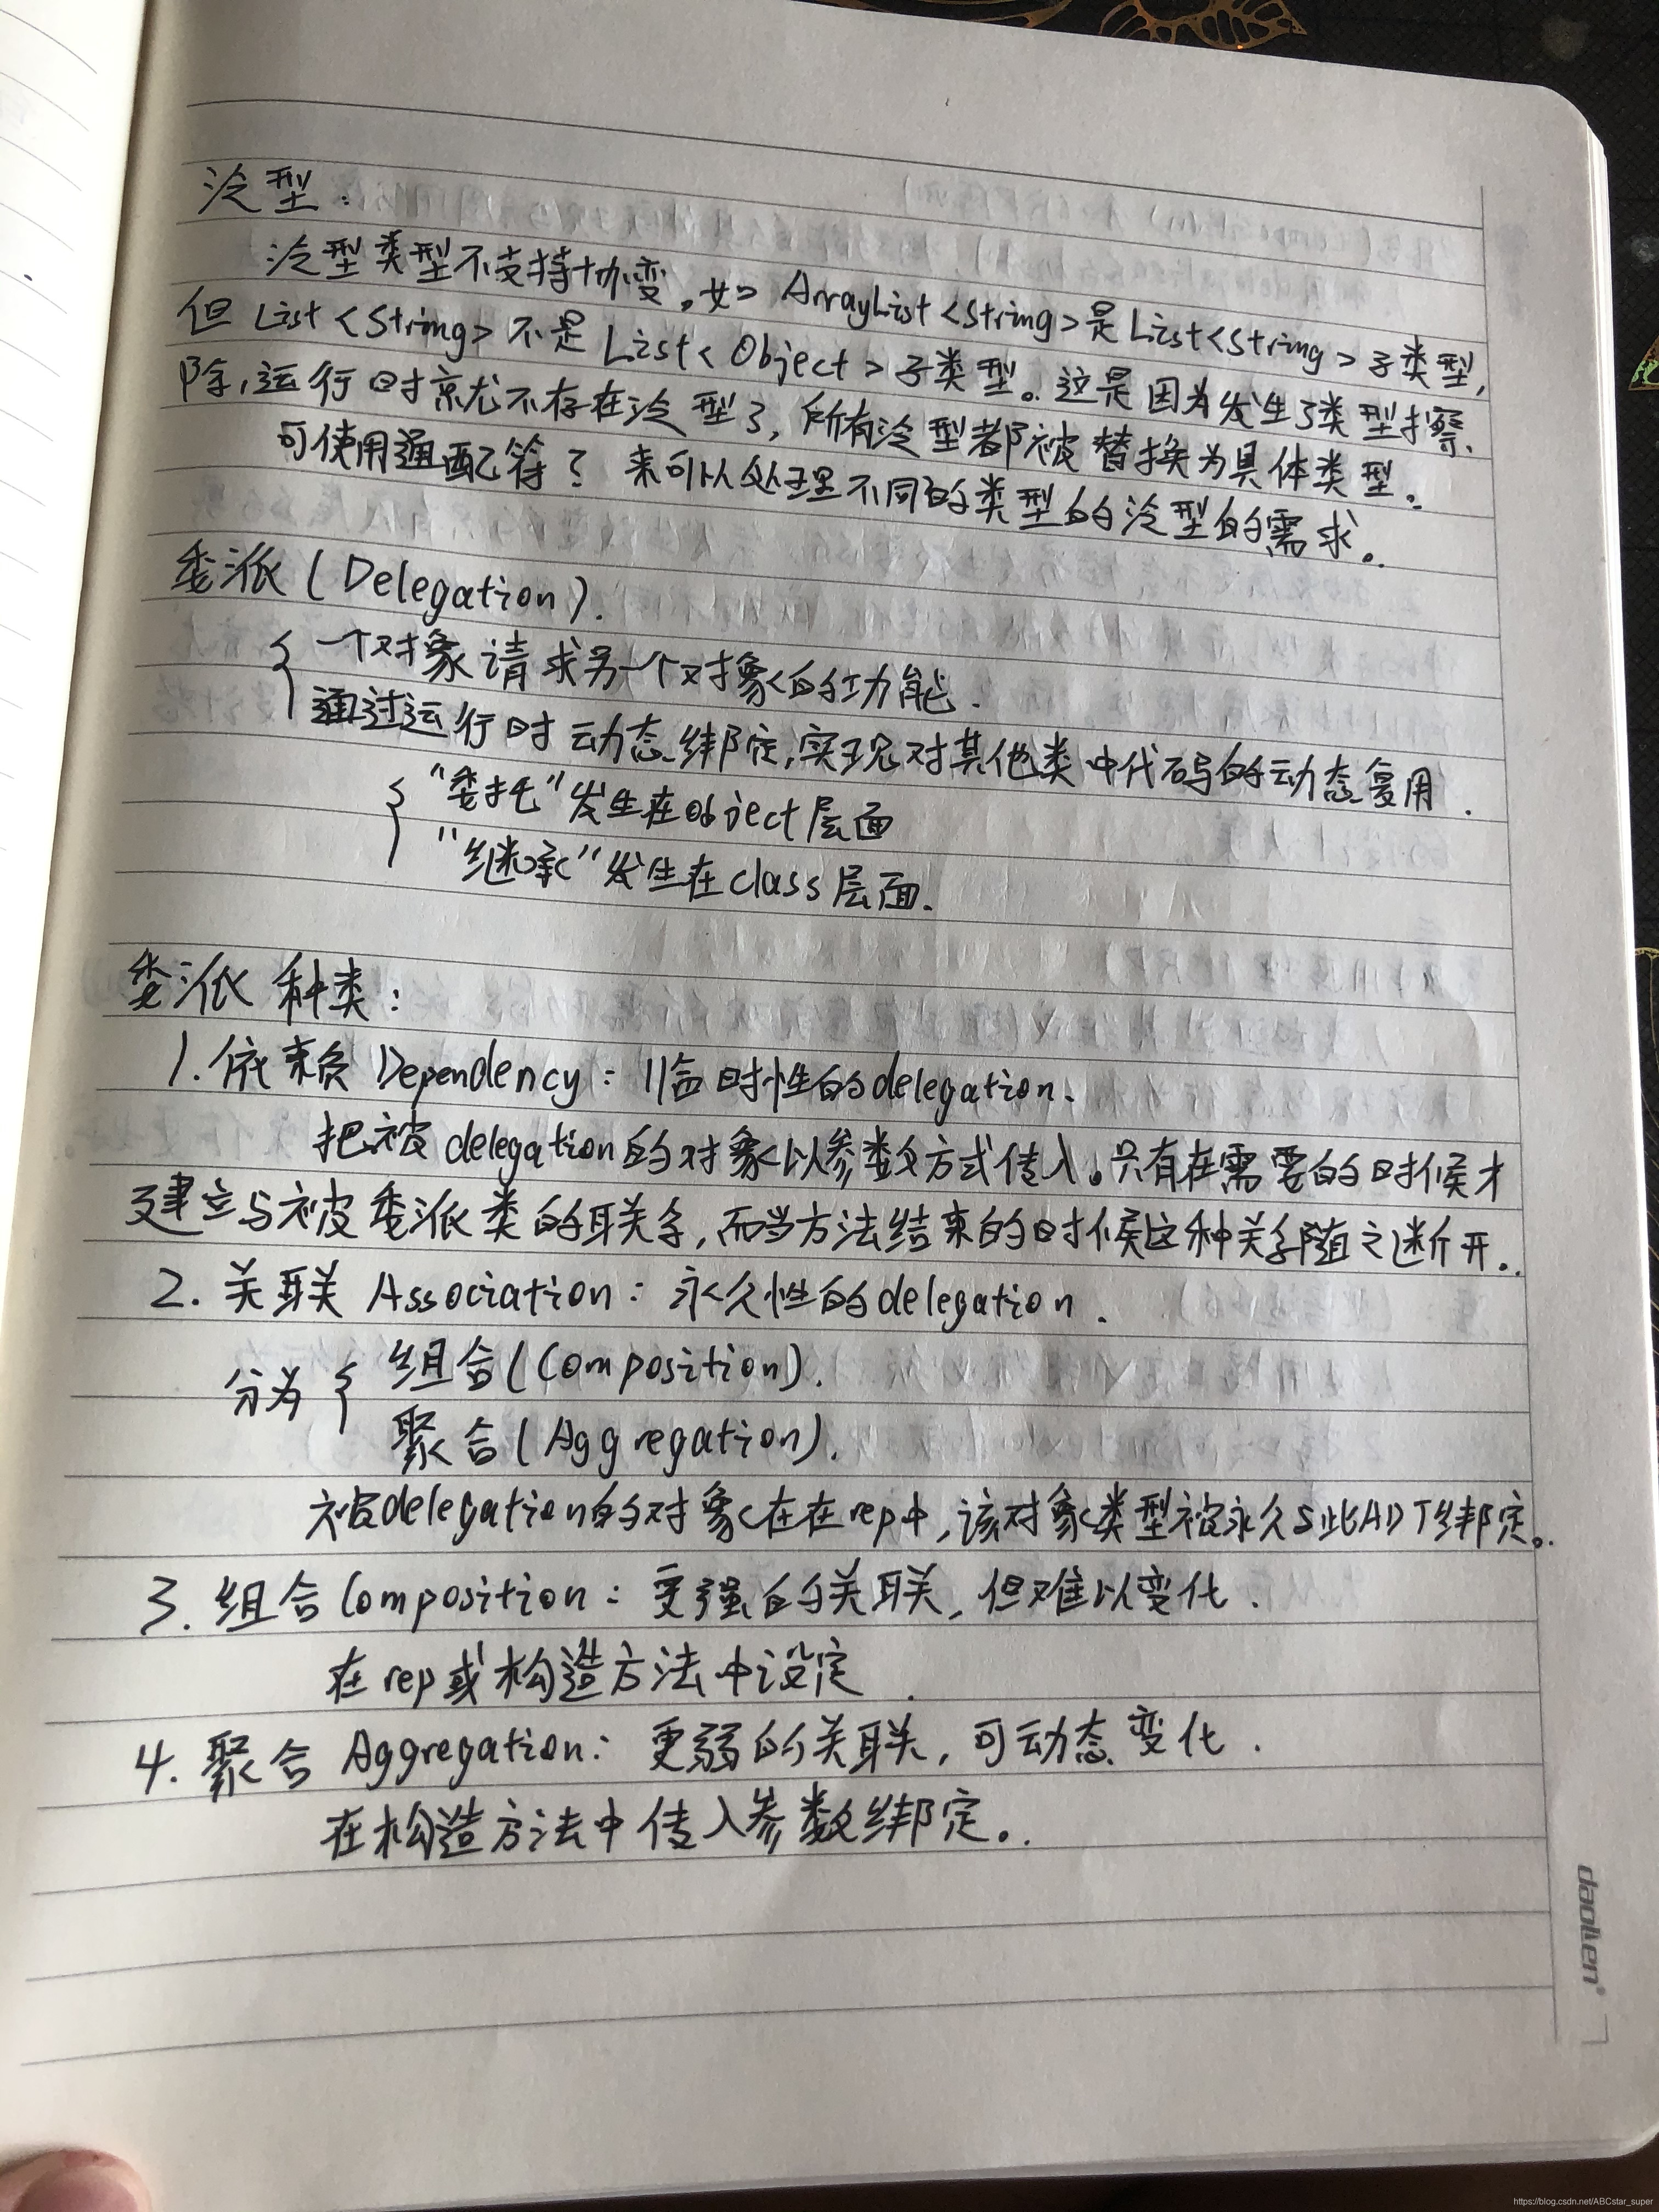 泛型：
泛型类型不支持协变。如 ArrayList<String>是List<String>子类型，
但 List<String> 不是 List<Object>子类型。这是因为发生了类型擦
除，运行时就不存在泛型了，所有泛型都被替换为具体类型。
可使用通配符？来可以处理不同的类型的泛型的需求。
委派（Delegation）.
一个对象请求另一个对象的功能.
通过运行时动态绑定，实现对其他类中代码的动态复用.
“委托”发生在object层面
“继承”发生在class层面.
委派种类：
1. 依赖 Dependency：临时性的delegation.
把被delegation的对象以参数方式传入。只有在需要的时候才
建立与被委派类的联系，而当方法结束的时候这种关系随之断开.
2. 关联 Association：永久性的delegation.
分为 组合(Composition).
聚合(Aggregation).
被delegation的对象在在rep中，该对象类型被永久与此ADT绑定。
3. 组合Composition：更强的关联，但难以变化.
在rep或构造方法中设定.
4. 聚合 Aggregation：更弱的关联，可动态变化.
在构造方法中传入参数绑定。
daolen
https://blog.csdn.net/ABCstar_super